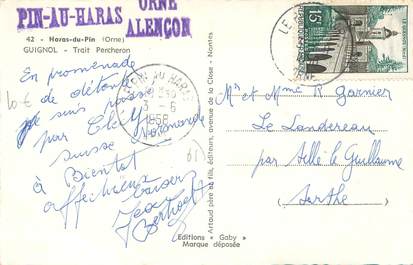 PIN-AU-HARAS
ORNE
ALENÇON
42 - Haras-du-Pin (Orne)
GUIGNOL - Trait Percheron
En promenade
de détente
je suis passé
par
suisse Normande
à Bientôt
affectueux
Jean
10 €
LE PIN AU HARAS
3-6
1958
ORNE
15F
Artaud père et fils, éditeurs, avenue de la Close - Nantes
Mr et Mme R Garnier
Le Landereau
par Sillé le Guillaume
Sarthe
Editions "Gaby"
Marque déposée